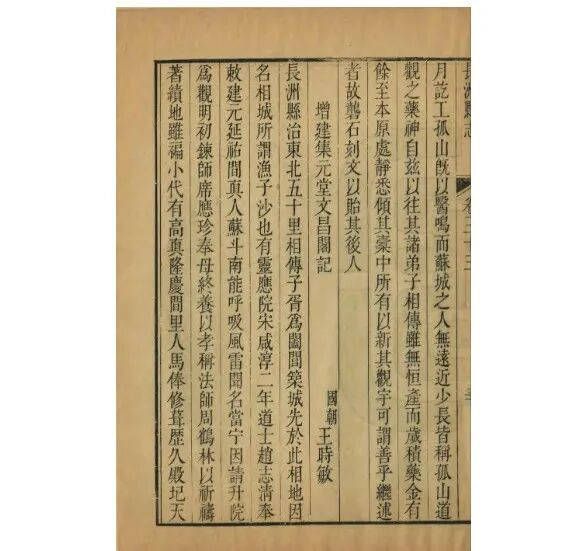 長洲縣志
卷三十三
月訖工孤山旣以醫鳴而蘇城之人無遠近少長皆稱孤山道
觀之藥神自兹以往其諸弟子相傳雖無恒產而歲積藥金有
餘至本原處靜悉傾其橐中所有以新其觀宇可謂善乎繼述
者故礱石刻文以貽其後人
增建集元堂文昌閣記
國朝王時敏
長洲縣治東北五十里相傳子胥爲闔閭築城先於此相地因
名相城所謂漁子沙也有靈應院宋咸淳二年道士趙志清奉
敕建元延祐間真人蘇斗南能呼吸風雷聞名當宁因請升院
爲觀明初鍊師席應珍奉母終養以孝稱法師周鶴林以祈禱
著績地雖褊小代有高真隆慶間里人馬俸修葺歷久殿圮天